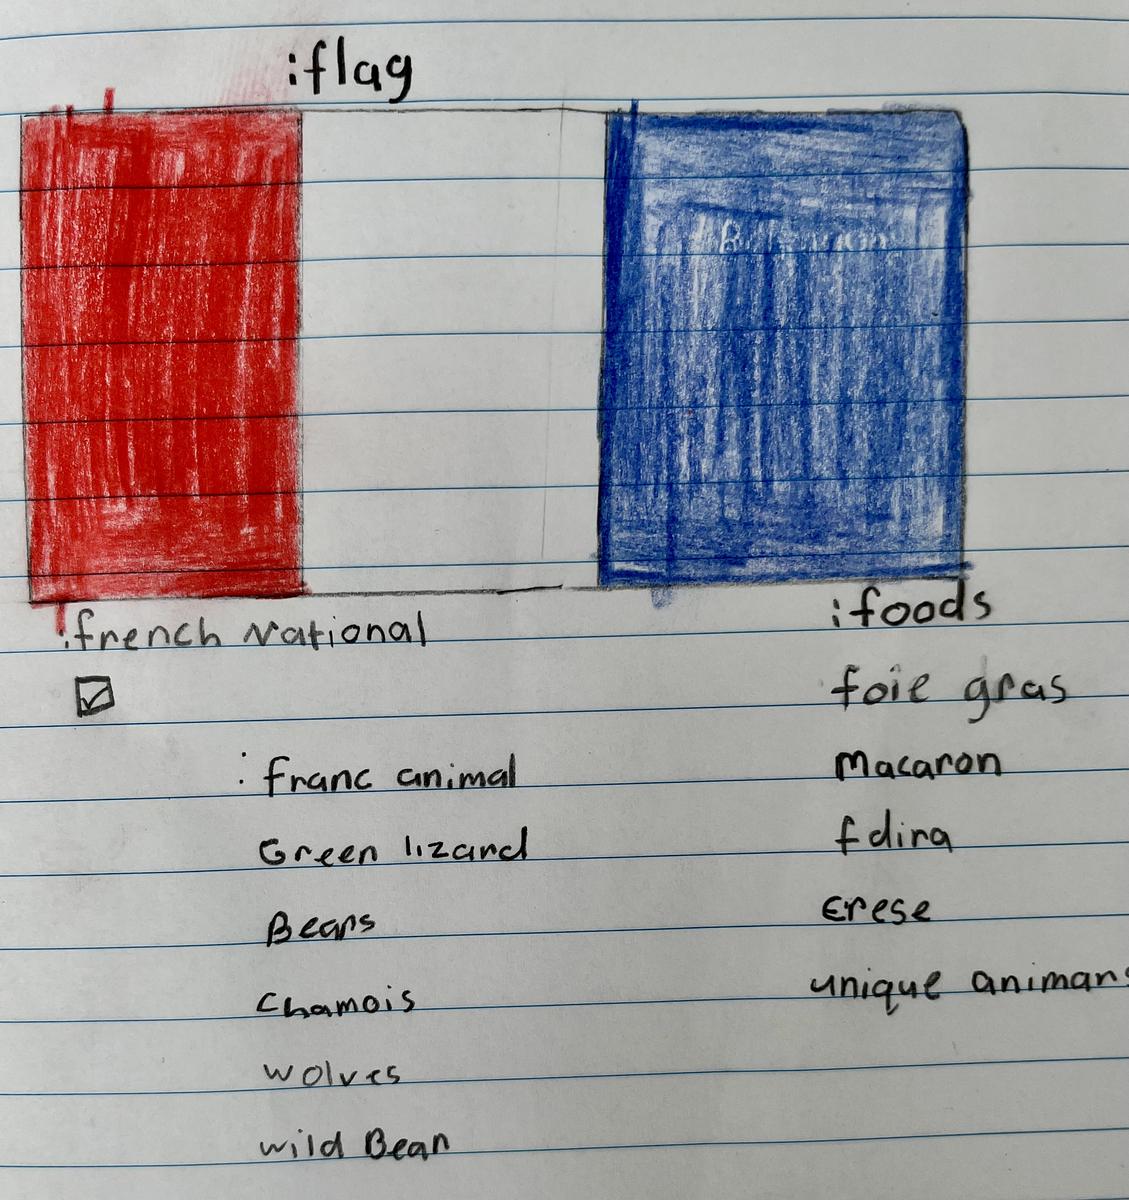 :flag
:french National
:foods
foie gras
: franc animal
Macaron
Green lizard
fdira
Bears
Erese
Chamois
unique animans
wolves
wild Bean